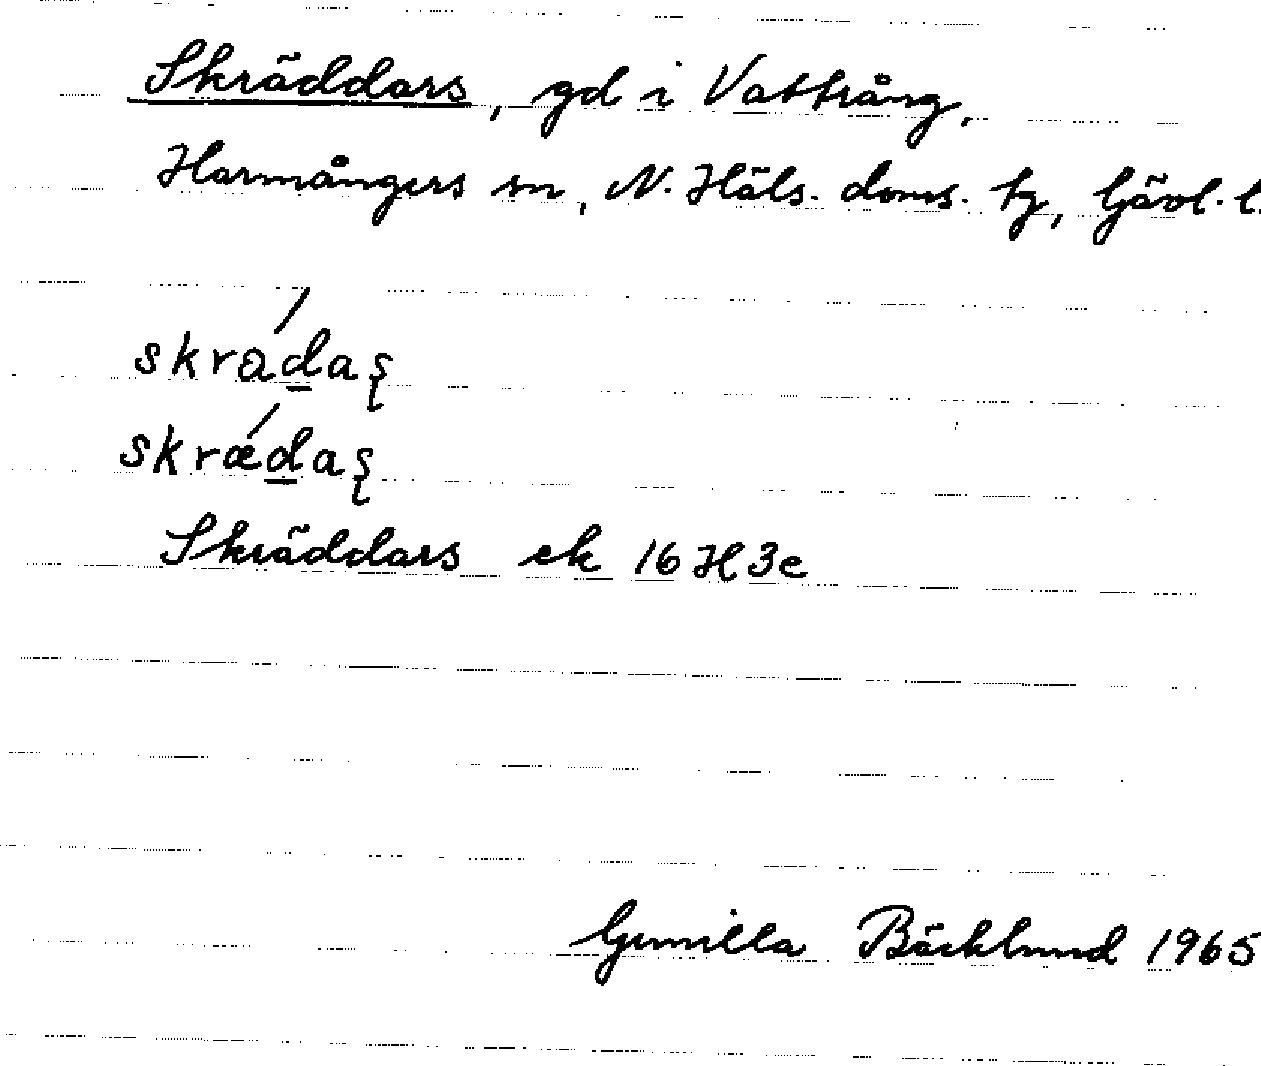 Skräddars, gd i Vattrång,
Harmångers sn, N. Häls. doms. tg, Gävl. l.
skrád̲aʂ
skrǽd̲aʂ
Skräddars ek 16 H 3e
Gunilla Bäcklund 1965